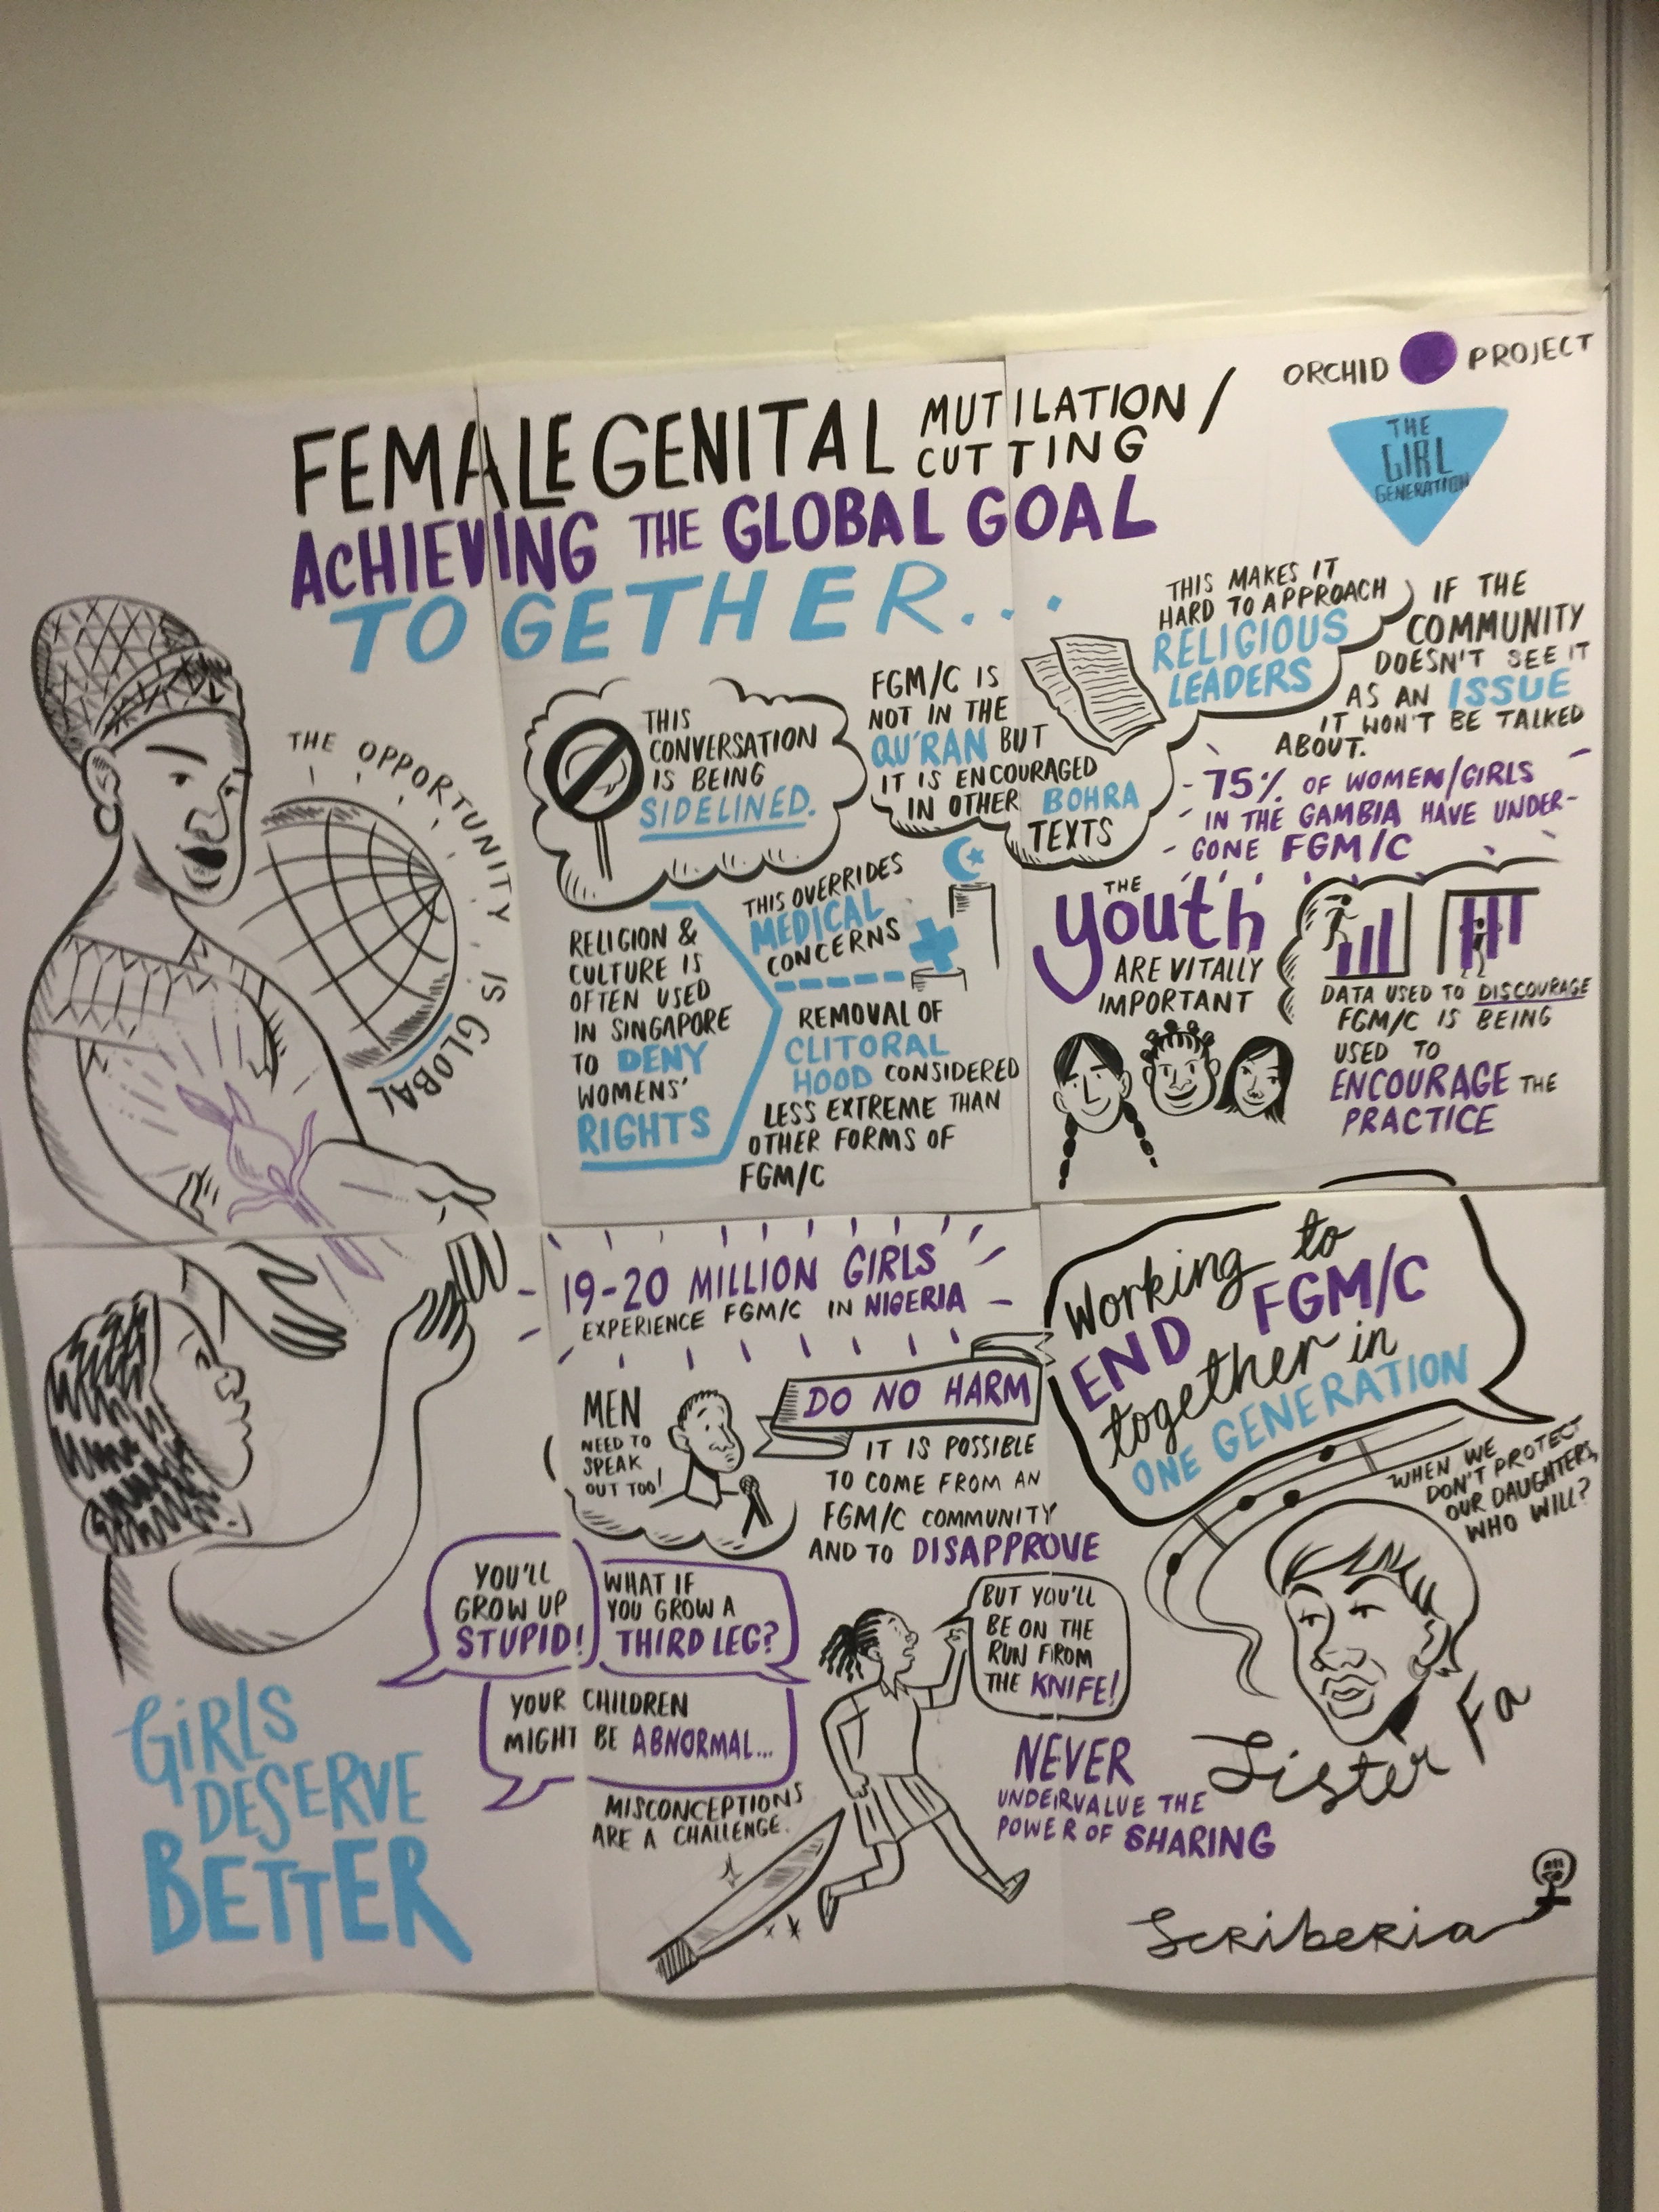 ORCHID PROJECT
THE
GIRL
GENERATION
FEMALE GENITAL MUTILATION/
CUTTING
ACHIEVING THE GLOBAL GOAL
TOGETHER...
THE OPPORTUNITY IS GLOBALLY
THIS
CONVERSATION
IS BEING
SIDELINED.
FGM/C IS
NOT IN THE
QU'RAN BUT
IT IS ENCOURAGED
IN OTHER BOHRA
TEXTS
THIS MAKES IT
HARD TO APPROACH
RELIGIOUS
LEADERS
IF THE
COMMUNITY
DOESN'T SEE IT
AS AN ISSUE
IT WON'T BE TALKED
ABOUT.
75% OF WOMEN/GIRLS
IN THE GAMBIA HAVE UNDER-
GONE FGM/C
RELIGION &
CULTURE IS
OFTEN USED
IN SINGAPORE
TO DENY
WOMENS'
RIGHTS
THIS OVERRIDES
MEDICAL
CONCERNS
REMOVAL OF
CLITORAL
HOOD CONSIDERED
LESS EXTREME THAN
OTHER FORMS OF
FGM/C
THE
youth
ARE VITALLY
IMPORTANT
DATA USED TO DISCOURAGE
FGM/C IS BEING
USED TO
ENCOURAGE THE
PRACTICE
19-20 MILLION GIRLS
EXPERIENCE FGM/C IN NIGERIA
MEN
NEED TO
SPEAK
OUT TOO!
DO NO HARM
IT IS POSSIBLE
TO COME FROM AN
FGM/C COMMUNITY
AND TO DISAPPROVE
Working to
END FGM/C
together in
ONE GENERATION
WHEN WE
DON'T PROTECT
OUR DAUGHTERS,
WHO WILL?
YOU'LL
GROW UP
STUPID!
WHAT IF
YOU GROW A
THIRD LEG?
YOUR CHILDREN
MIGHT BE ABNORMAL...
MISCONCEPTIONS
ARE A CHALLENGE.
BUT YOU'LL
BE ON THE
RUN FROM
THE KNIFE!
NEVER
UNDERVALUE THE
POWER OF SHARING
Sister Fa
GIRLS
DESERVE
BETTER
Scriberia